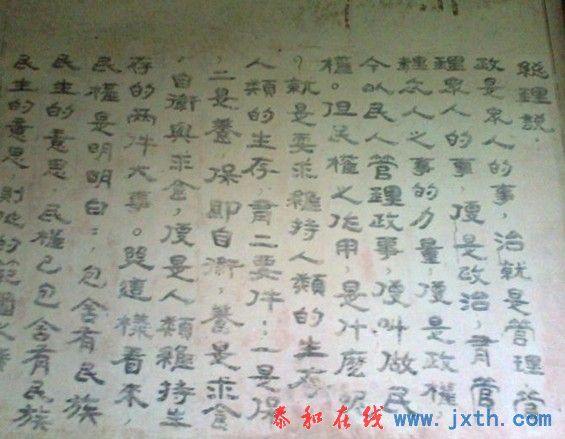 總理說:
政是眾人的事,治就是管理,管
理眾人的事,便是政治,有管
理眾人之事的力量,便是政權,
今以民人管理政事,便叫做民
權。但民權之作用,是什麼呢
?就是要求維持人類的生存
人類的生存,有二要件:一是保
,二是養,保即自衛,養是求食
,自衛與求食,便是人類維持生
存的兩件大事。照這樣看來
民權是明明白:,包含有民族
民生的意思,民權已包含有民族
民生的意思,則他的範圍之
泰和在线 www.jxth.com